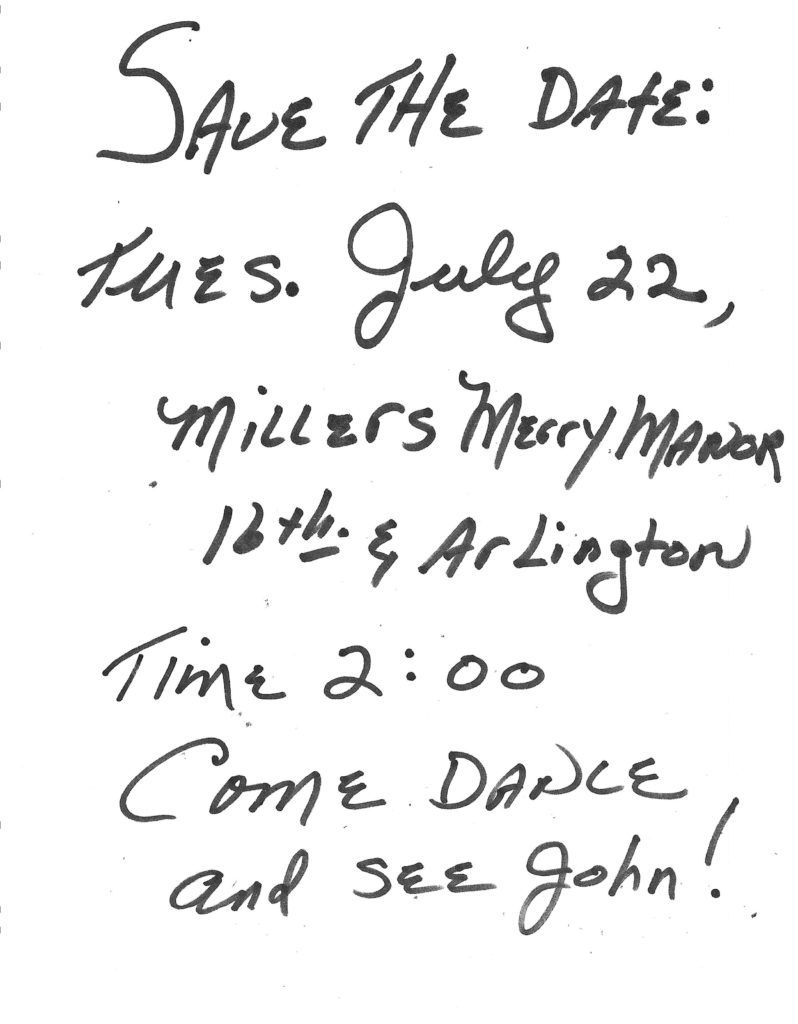 SAVE THE DATE:
TUES. July 22,
Millers Merry Manor
16th. & Arlington
Time 2:00
Come DANCE
and see John!